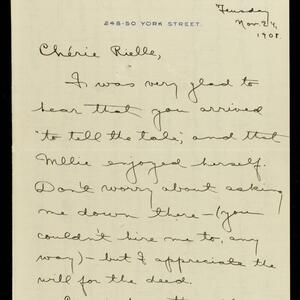 Tuesday
Nov. 24,
1908.
248-50 YORK STREET.
Chérie Rielle,
I was very glad to
hear that you arrived
"to tell the tale", and that
Mllie enjoyed herself.
Don't worry about asking
me down there – (you
couldn't hire me to, any
way) – but I appreciate the
will for the deed.